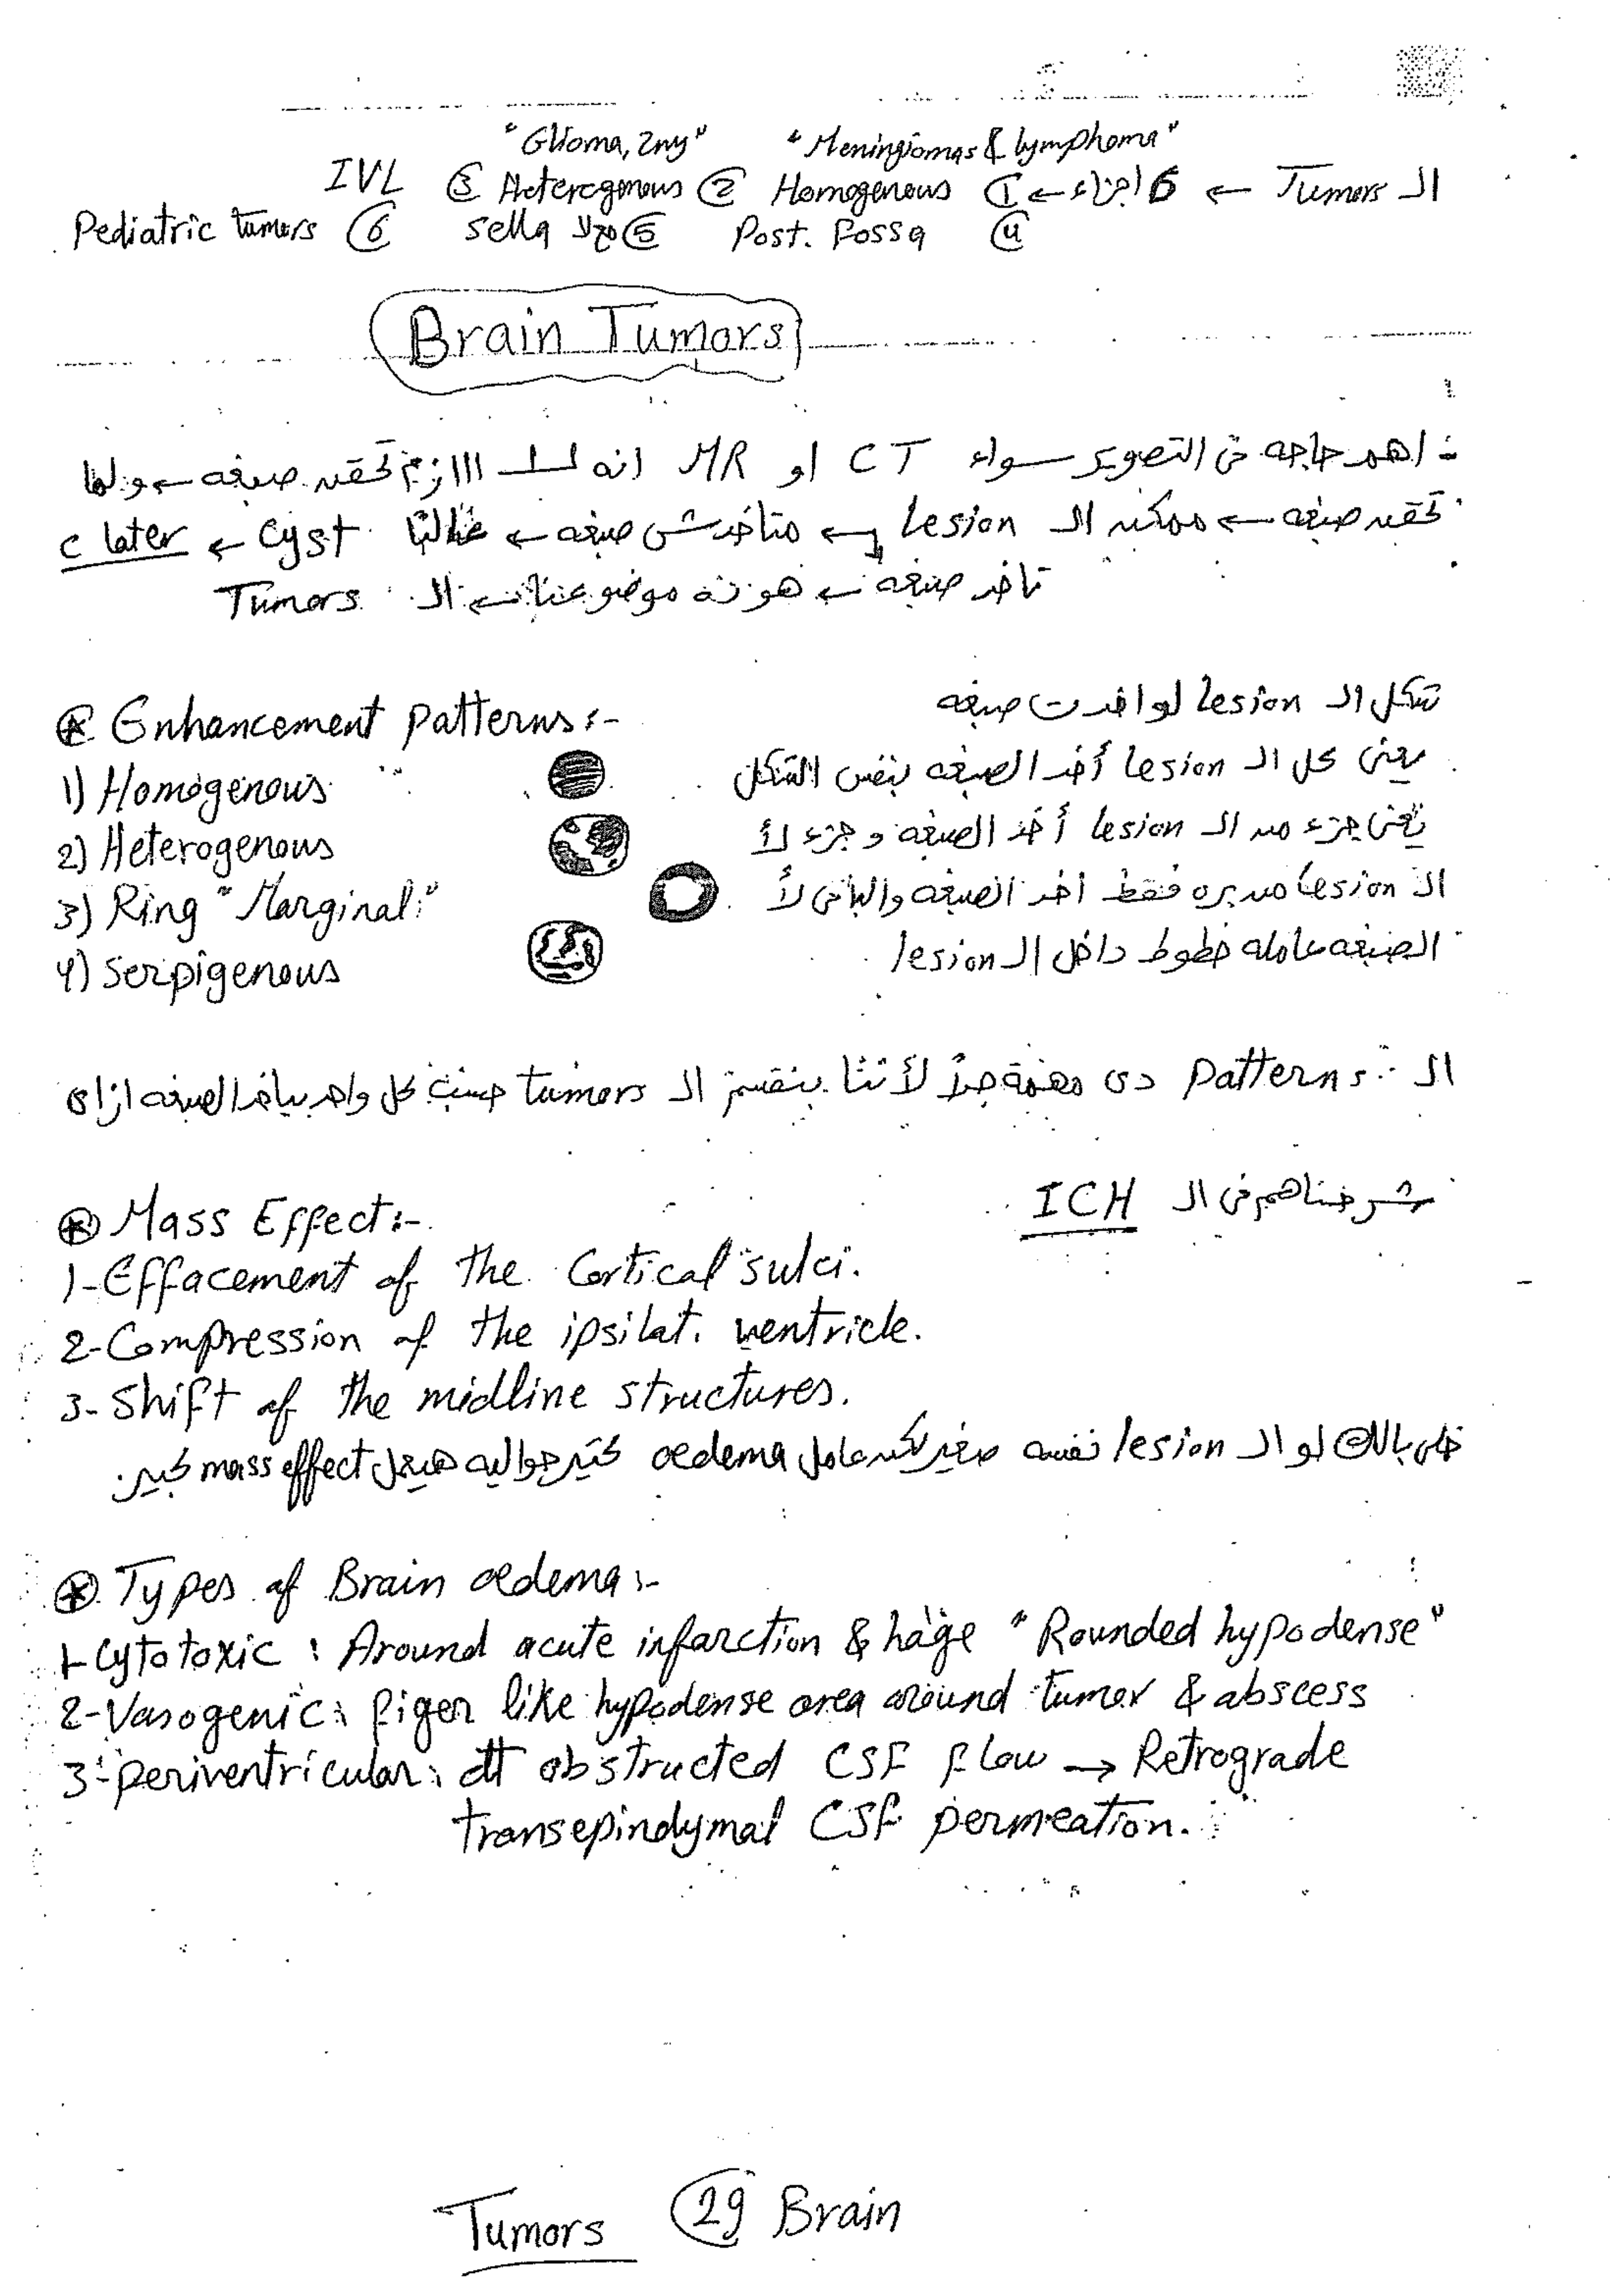 "Glioma, 2ry" "Meningiomas & lymphoma"
ال Tumors ← 6 اجزاء ← ① Homogenous ② Heterogenous ③ IVL
④ Post. fossa ⑤ sella ال ⑥ Pediatric tumors
Brain Tumors
: اهم حاجه فى التصوير سواء CT او MR انه لازم تحقن صبغه ← ولما
تحقن صبغه ← ممكن ال lesion ← متاخدش صبغه ← غالبًا Cyst ← c later
تاخد صبغه ← هو ده موضوعنا ← ال Tumors
⊛ Enhancement patterns :- شكل ال lesion لو اخدت صبغه
1) Homogenous يعنى كل ال lesion أخد الصبغه بنفس الشكل
2) Heterogenous يعنى جزء من ال lesion أخد الصبغه و جزء لأ
3) Ring "Marginal" ال lesion من بره فقط اخد الصبغه والباقى لأ
4) Serpigenous الصبغه عامله خطوط داخل ال lesion
ال patterns دى مهمة جدًا لأننا بنقسم ال tumors حسب كل واحد بياخد الصبغه ازاى
⊛ Mass Effect :- شرحناهم فى ال ICH
1- Effacement of the Cortical sulci.
2- Compression of the ipsilat. ventricle.
3- Shift of the midline structures.
خلى بالك لو ال lesion نفسه صغير لكن عامل oedema كتير حواليه هيعمل mass effect كبير.
⊛ Types of Brain oedema :-
1- Cytotoxic : Around acute infarction & hage "Rounded hypodense"
2- Vasogenic : figer like hypodense area around tumor & abscess
3- periventricular : dt obstructed CSF flow → Retrograde
transepindymal CSF permeation.
Tumors 29 Brain